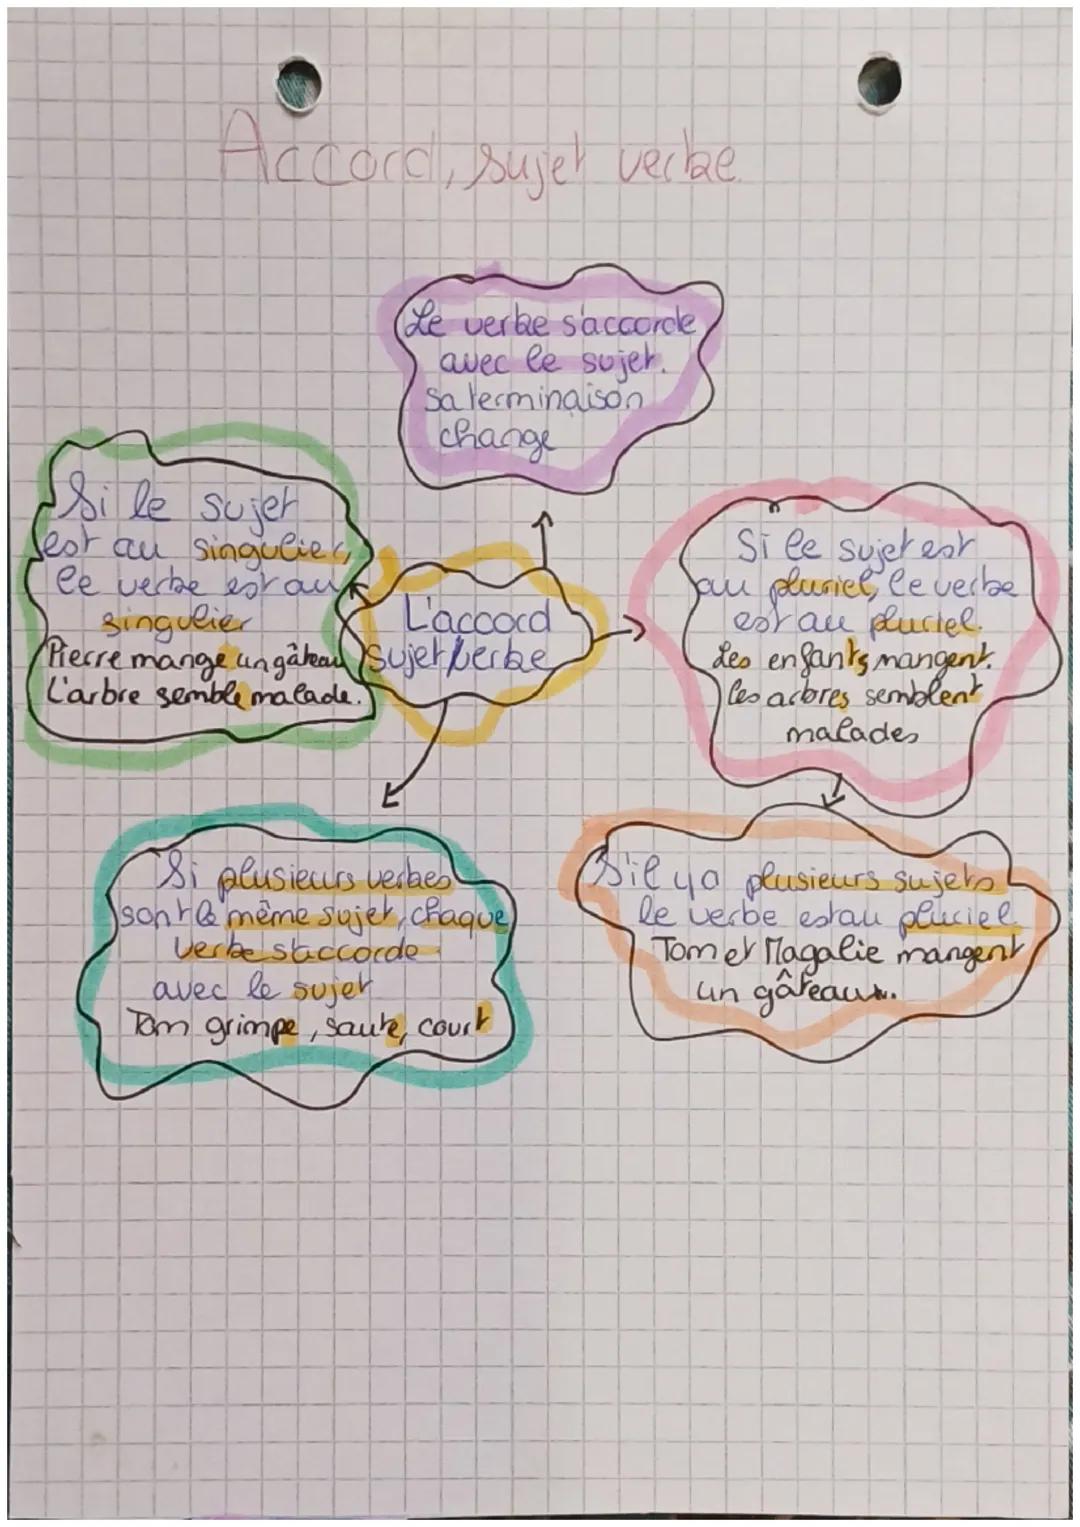 Accord, sujet verbe.
Le verbe s'accorde
avec le sujet.
sa terminaison
change
Si le sujet
est au singulier,
le verbe est au
singulier
Pierre mange un gâteau
L'arbre semble malade.
L'accord
sujet/verbe
Si le sujet est
au pluriel, le verbe
est au pluriel.
Les enfants mangent.
les arbres semblent
malades
Si plusieurs verbes
sont le même sujet, chaque
verbe s'accorde
avec le sujet
Tom grimpe, saute, court
S'il y a plusieurs sujets
le verbe est au pluriel.
Tom et Magalie mangent
un gâteau...